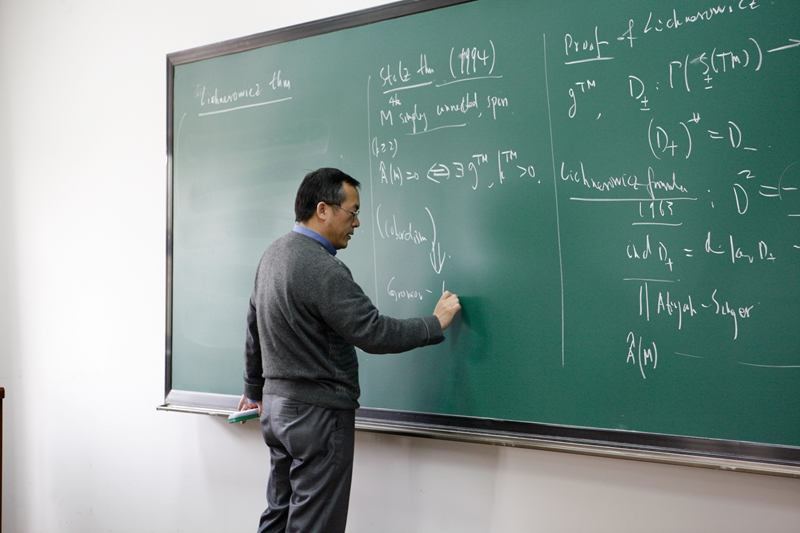 Lichnerowicz thm
Stolz thm (1994)
M⁴ᵏ simply connected, spin
(k≥2)
Â(M)=0 ⇔ ∃ g^TM, k^TM >0.
(Cobordism)
⇓
Gromov -
Proof of Lichnerowicz
g^TM, D± : Γ(S±(TM)) →
(D₊)* = D₋
Lichnerowicz formula : D² = -
1963
ind D₊ = dim ker D₊ -
|| Atiyah-Singer
Â(M)